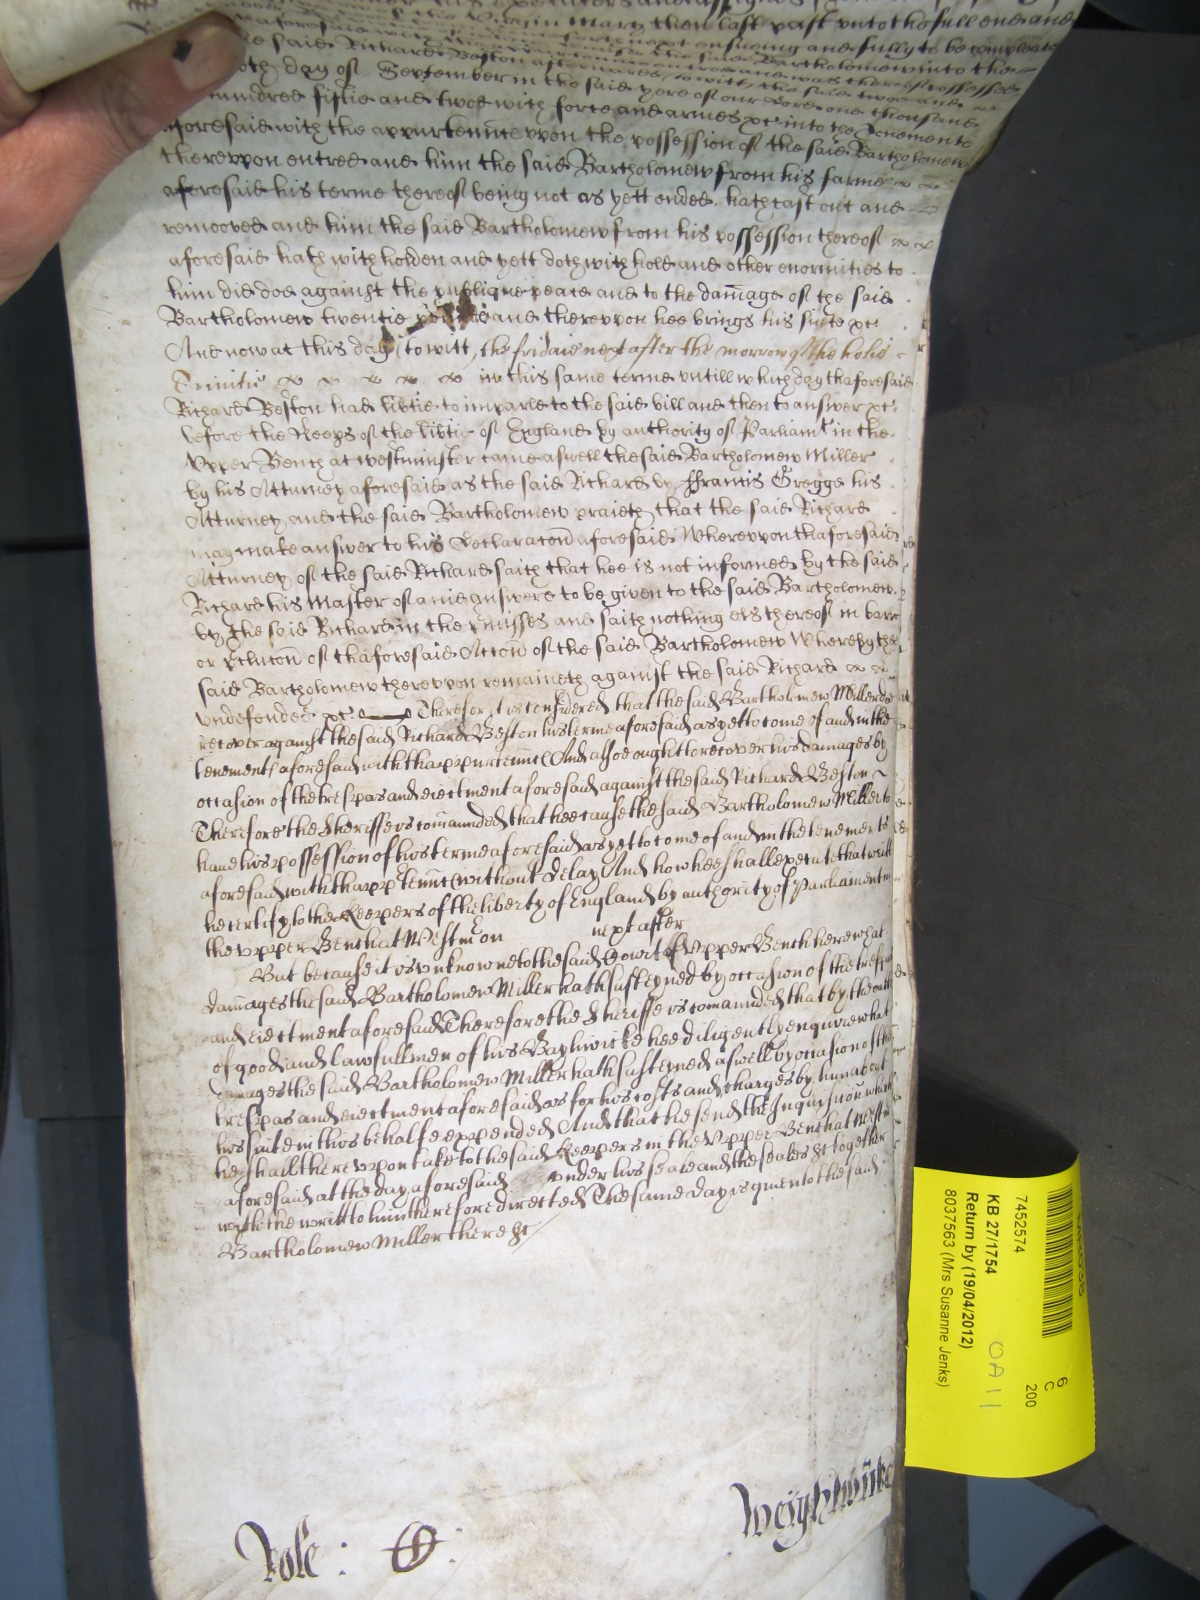 then last past unto the full end and
ensuing and fully to be compleate
the said Bartholomew into the
the said Richard Beston afterwards, to witt, the said twoe and
day of September in the said yere of our Lord one thousand
hundred fiftie and twoe with force and armes &c into the Tenements
aforesaid with the appurtennce vpon the possession of the said Bartholomew
therevpon entred and him the said Bartholomew from his farme
aforesaid his terme thereof being not as yett ended hath cast out and
remooved and him the said Bartholomew from his possession thereof
aforesaid hath withholden and yett doth withhold and other enormities to
him did doe against the publique peace and to the dam̄age of the said
Bartholomew twentie and therevpon hee brings his suite &c
And now at this day to witt, the fridaie next after the morrow of the holie
Trinitie in this same terme vntill which day thaforesaid
Richard Beston had lib̄tie to imparle to the said bill and then to answer &c
before the Keeps of the lib̄tie of England by authority of Parliamt in the
Vpper Bench at Westminster came aswell the said Bartholomew Miller
by his Atturney aforesaid as the said Richard by Francis Gregge his
Atturney and the said Bartholomew praieth that the said Richard
may make answer to his Declaracōn aforesaid Wherevpon thaforesaid
Atturney of the said Richard saith that hee is not informed by the said
Richard his Master of anie answere to be given to the said Bartholomew
by the said Richard in the p̄misses and saith nothing els thereof in barre
or p̄clucōn of thaforesaid Accōn of the said Bartholomew Whereby the
said Bartholomew therevpon remaineth against the said Richard
vndefended &c Therefore it is considered that the said Bartholomew Miller doe
recover against the said Richard Beston his terme aforesaid as yet to come of and in the
tenements aforesaid with thappurtennce And alsoe ought to recover his damages by
occasion of the trespas and eiectment aforesaid against the said Richard Beston
Therefore the Sheriffe is com̄aunded that hee cause the said Bartholomew Miller to
haue his possession of his terme aforesaid as yet to come of and in the tenements
aforesaid with thapptenn̄ce without delay And how hee shall execute that writt
he certify to the Keepers of the liberty of England by authority of Parliament in
the vpper Bench at Westm̄ on next after
But because it is vnknowne to the said Court of Vpper Bench here what
dam̄ages the said Bartholomew Miller hath susteyned by occasion of the trespas
and eiectment aforesaid Therefore the Sheriffe is com̄aunded that by the oath
of good and lawfull men of his Baylywicke hee diligently enquire what
damages the said Bartholomew Miller hath susteyned aswell by occasion of the
trespas and eiectment aforesaid as for his costs and charges by him about
his suite in this behalfe expended And that he send the Inquisicōn which
he shall therevpon take to the said Keepers in the Vpper Bench at Westm̄
aforesaid at the day aforesaid vnder his seale and the seales &c together
with the writt to him therefore directed The same day is given to the said
Bartholomew Miller there &c
Rolle :
7452574
KB 27/1754
Return by (19/04/2012)
8037563 (Mrs Susanne Jenks)
6
C
200